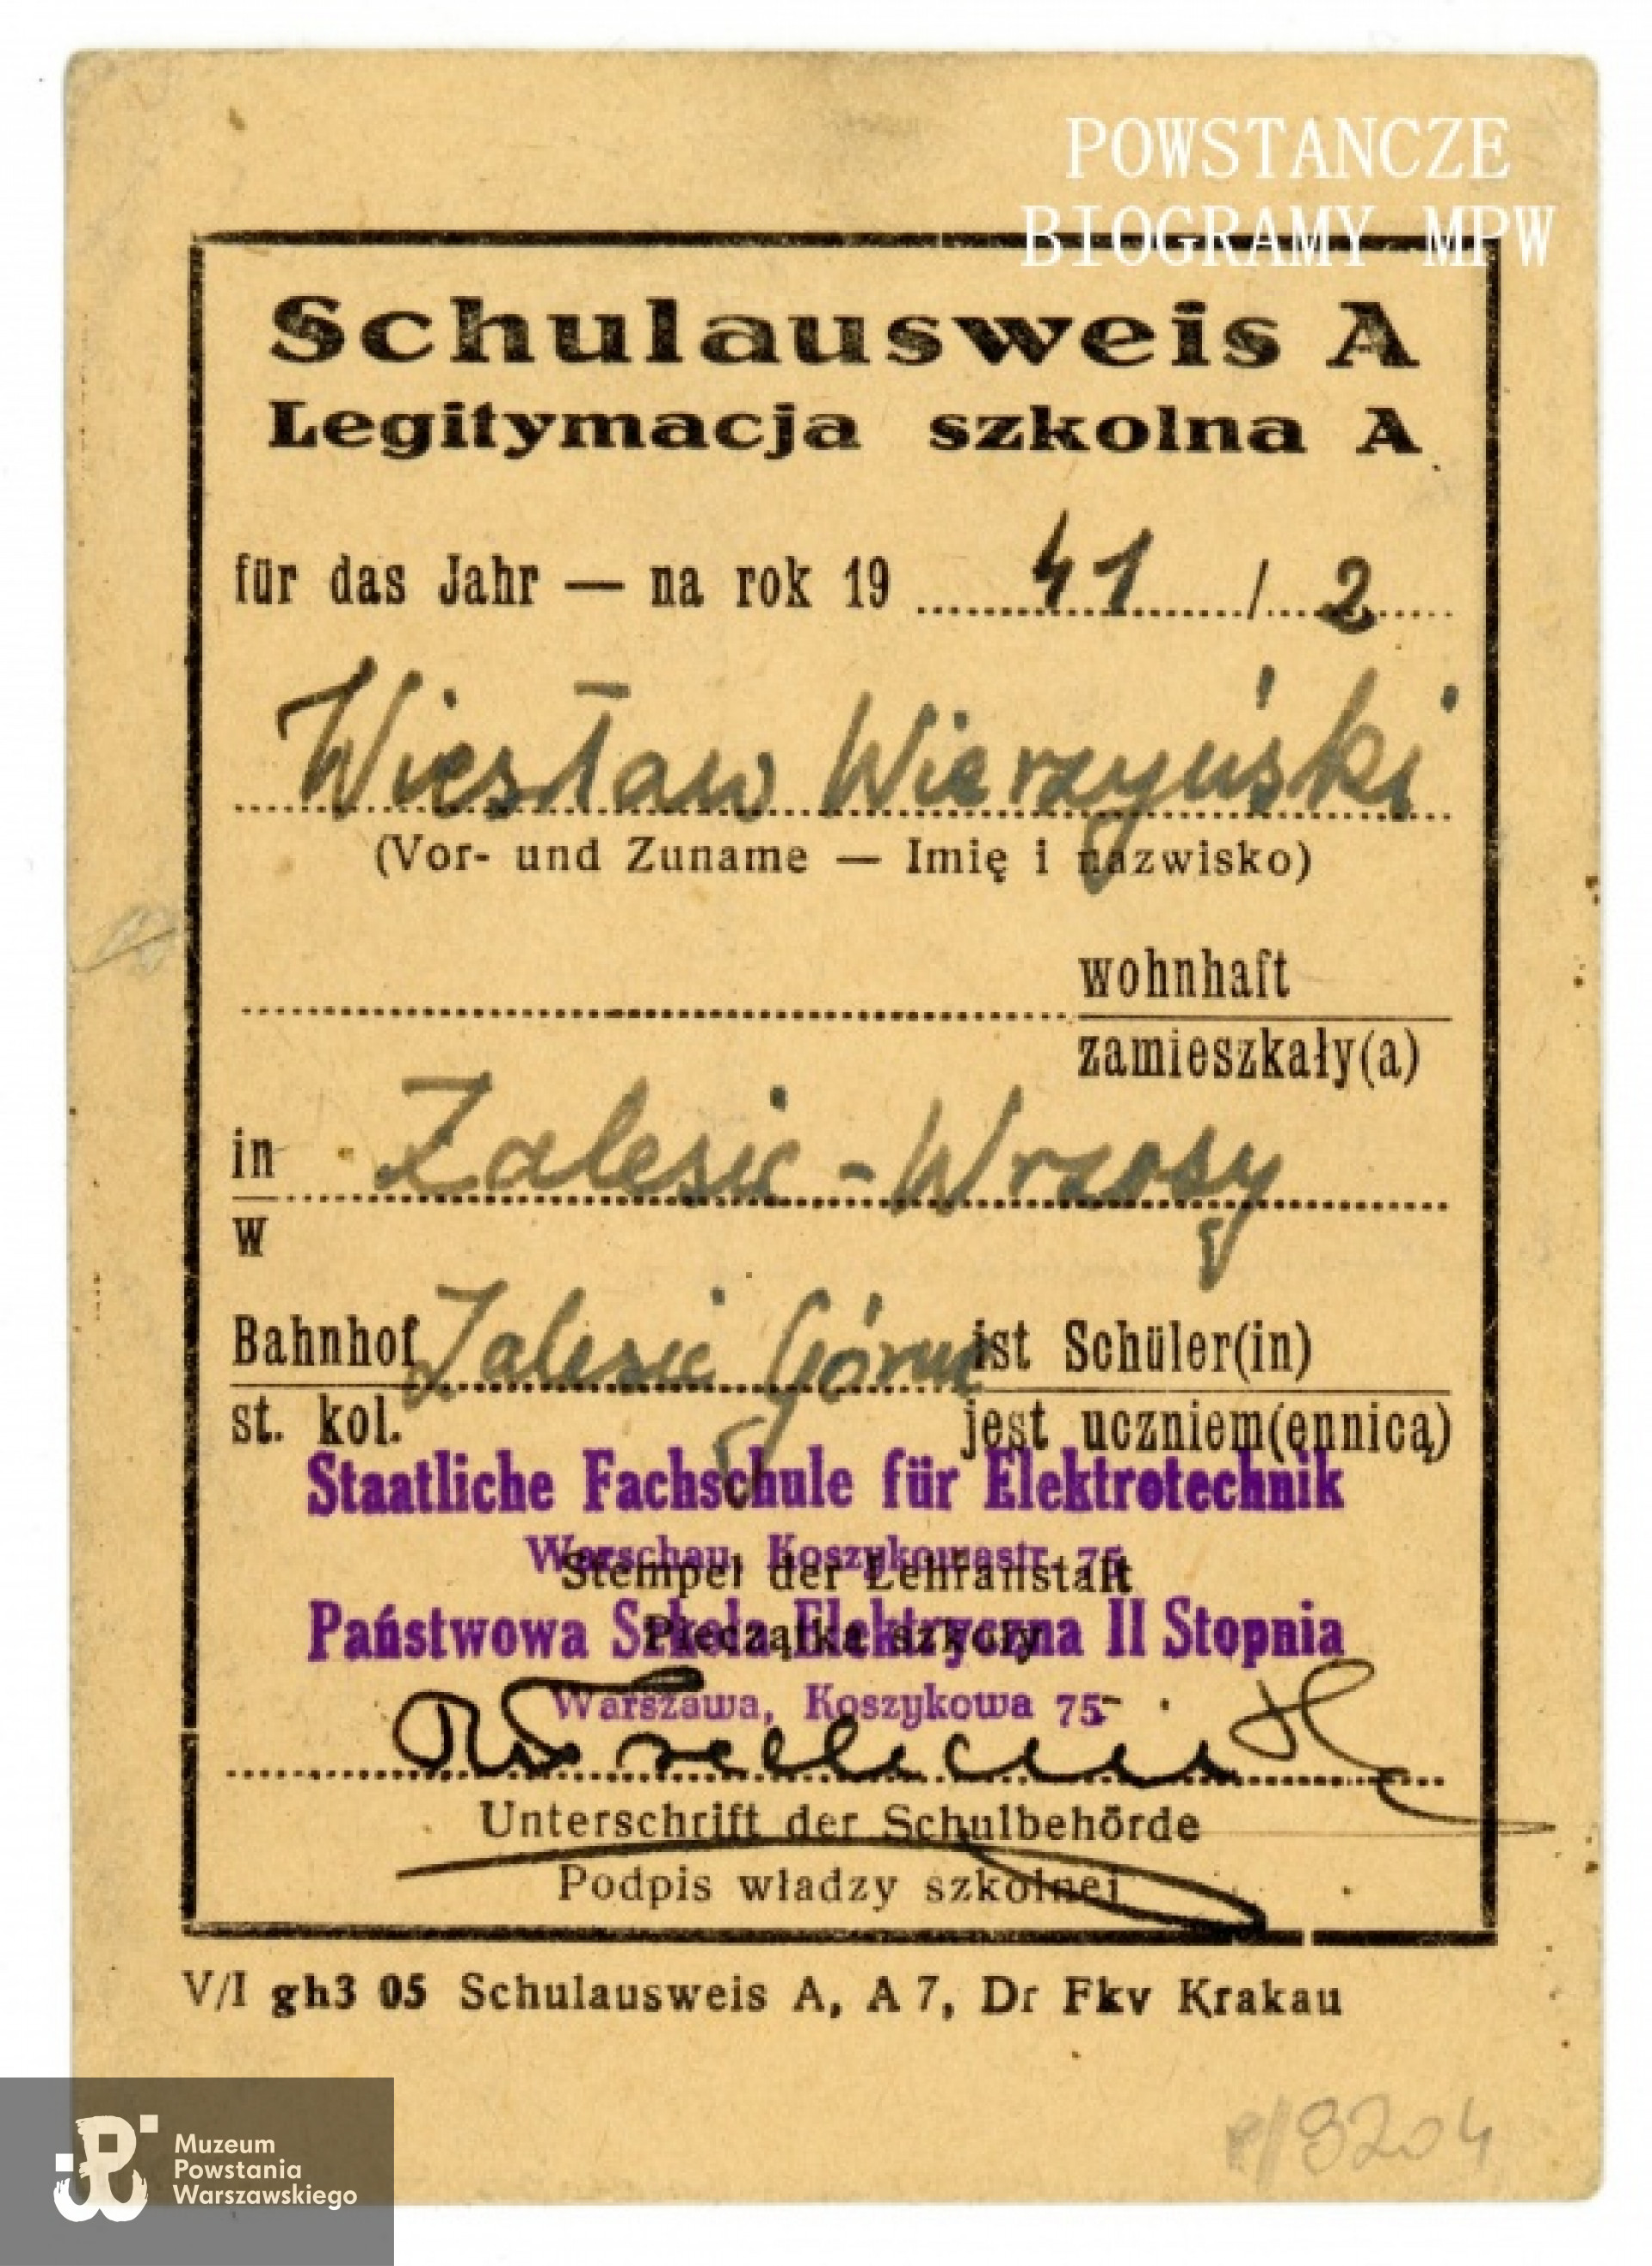 POWSTANCZE
BIOGRAMY MPW
Schulausweis A
Legitymacja szkolna A
für das Jahr — na rok 19 41 / 2
Wiesław Wierzyński
(Vor- und Zuname — Imię i nazwisko)
wohnhaft
zamieszkały(a)
in Zalesie - Wrzosy
w
Bahnhof Zalesie Górne ist Schüler(in)
st. kol. jest uczniem(ennicą)
Staatliche Fachschule für Elektrotechnik
Warschau, Koszykowastr. 75
Stempel der Lehranstalt
Państwowa Szkoła Elektryczna II Stopnia
Pieczątka szkoły
Warszawa, Koszykowa 75
Unterschrift der Schulbehörde
Podpis władzy szkolnej
V/I gh3 05 Schulausweis A, A 7, Dr Fkv Krakau
P/9204
Muzeum
Powstania
Warszawskiego